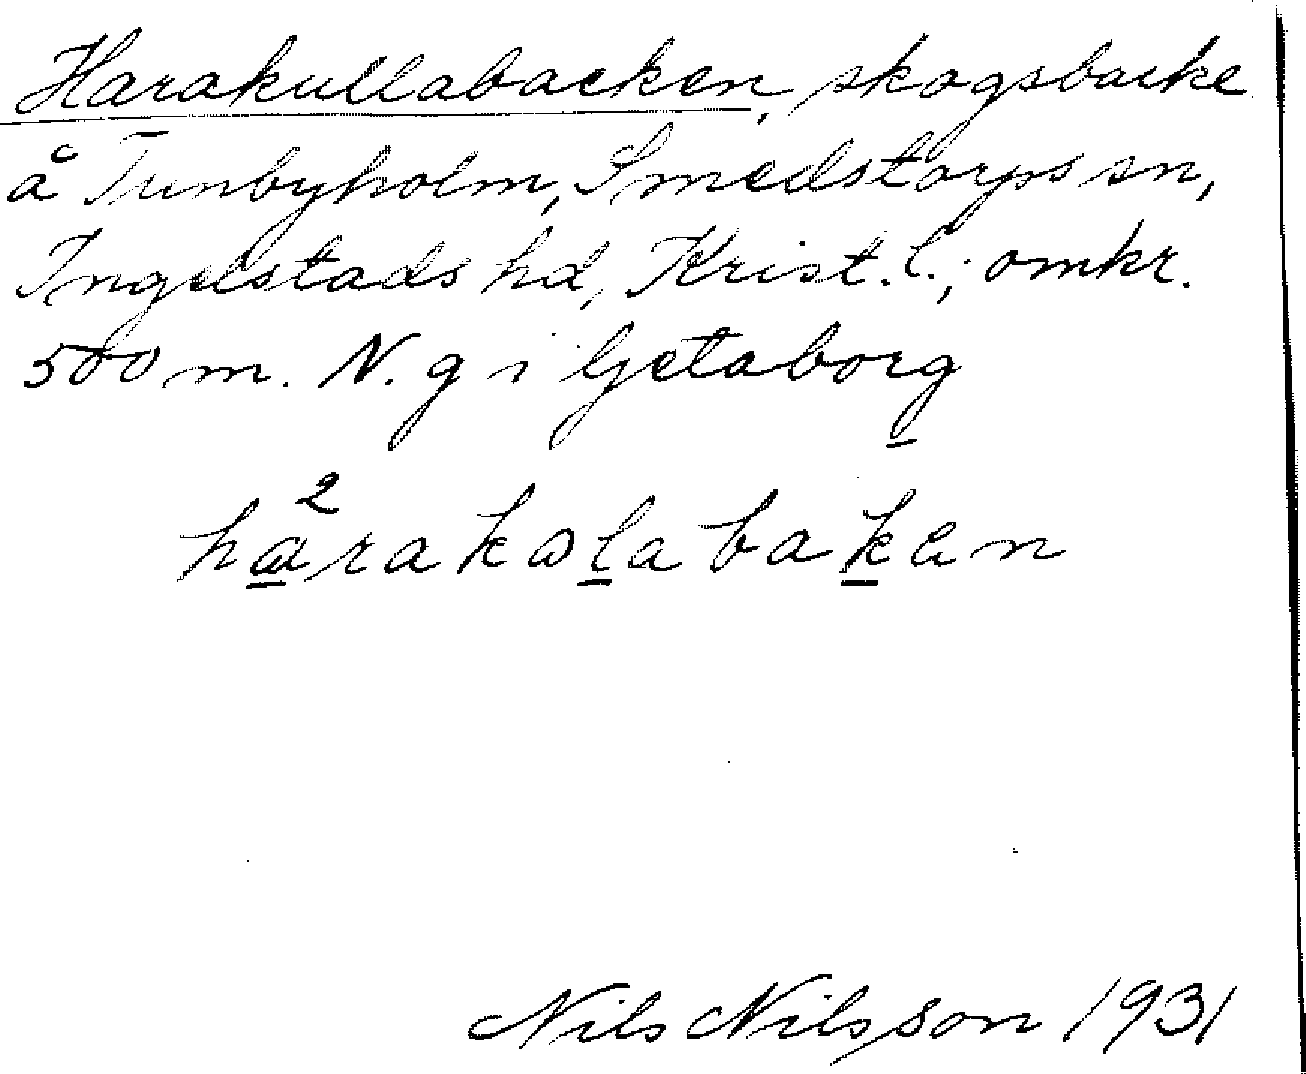 Harakullabacken, skogsbacke
å Tunbyholm, Smedstorps sn,
Ingelstads hd, Krist. l.; omkr.
500 m. N. g i Getaborg
ha²rakωlabakæn
Nils Nilsson 1931